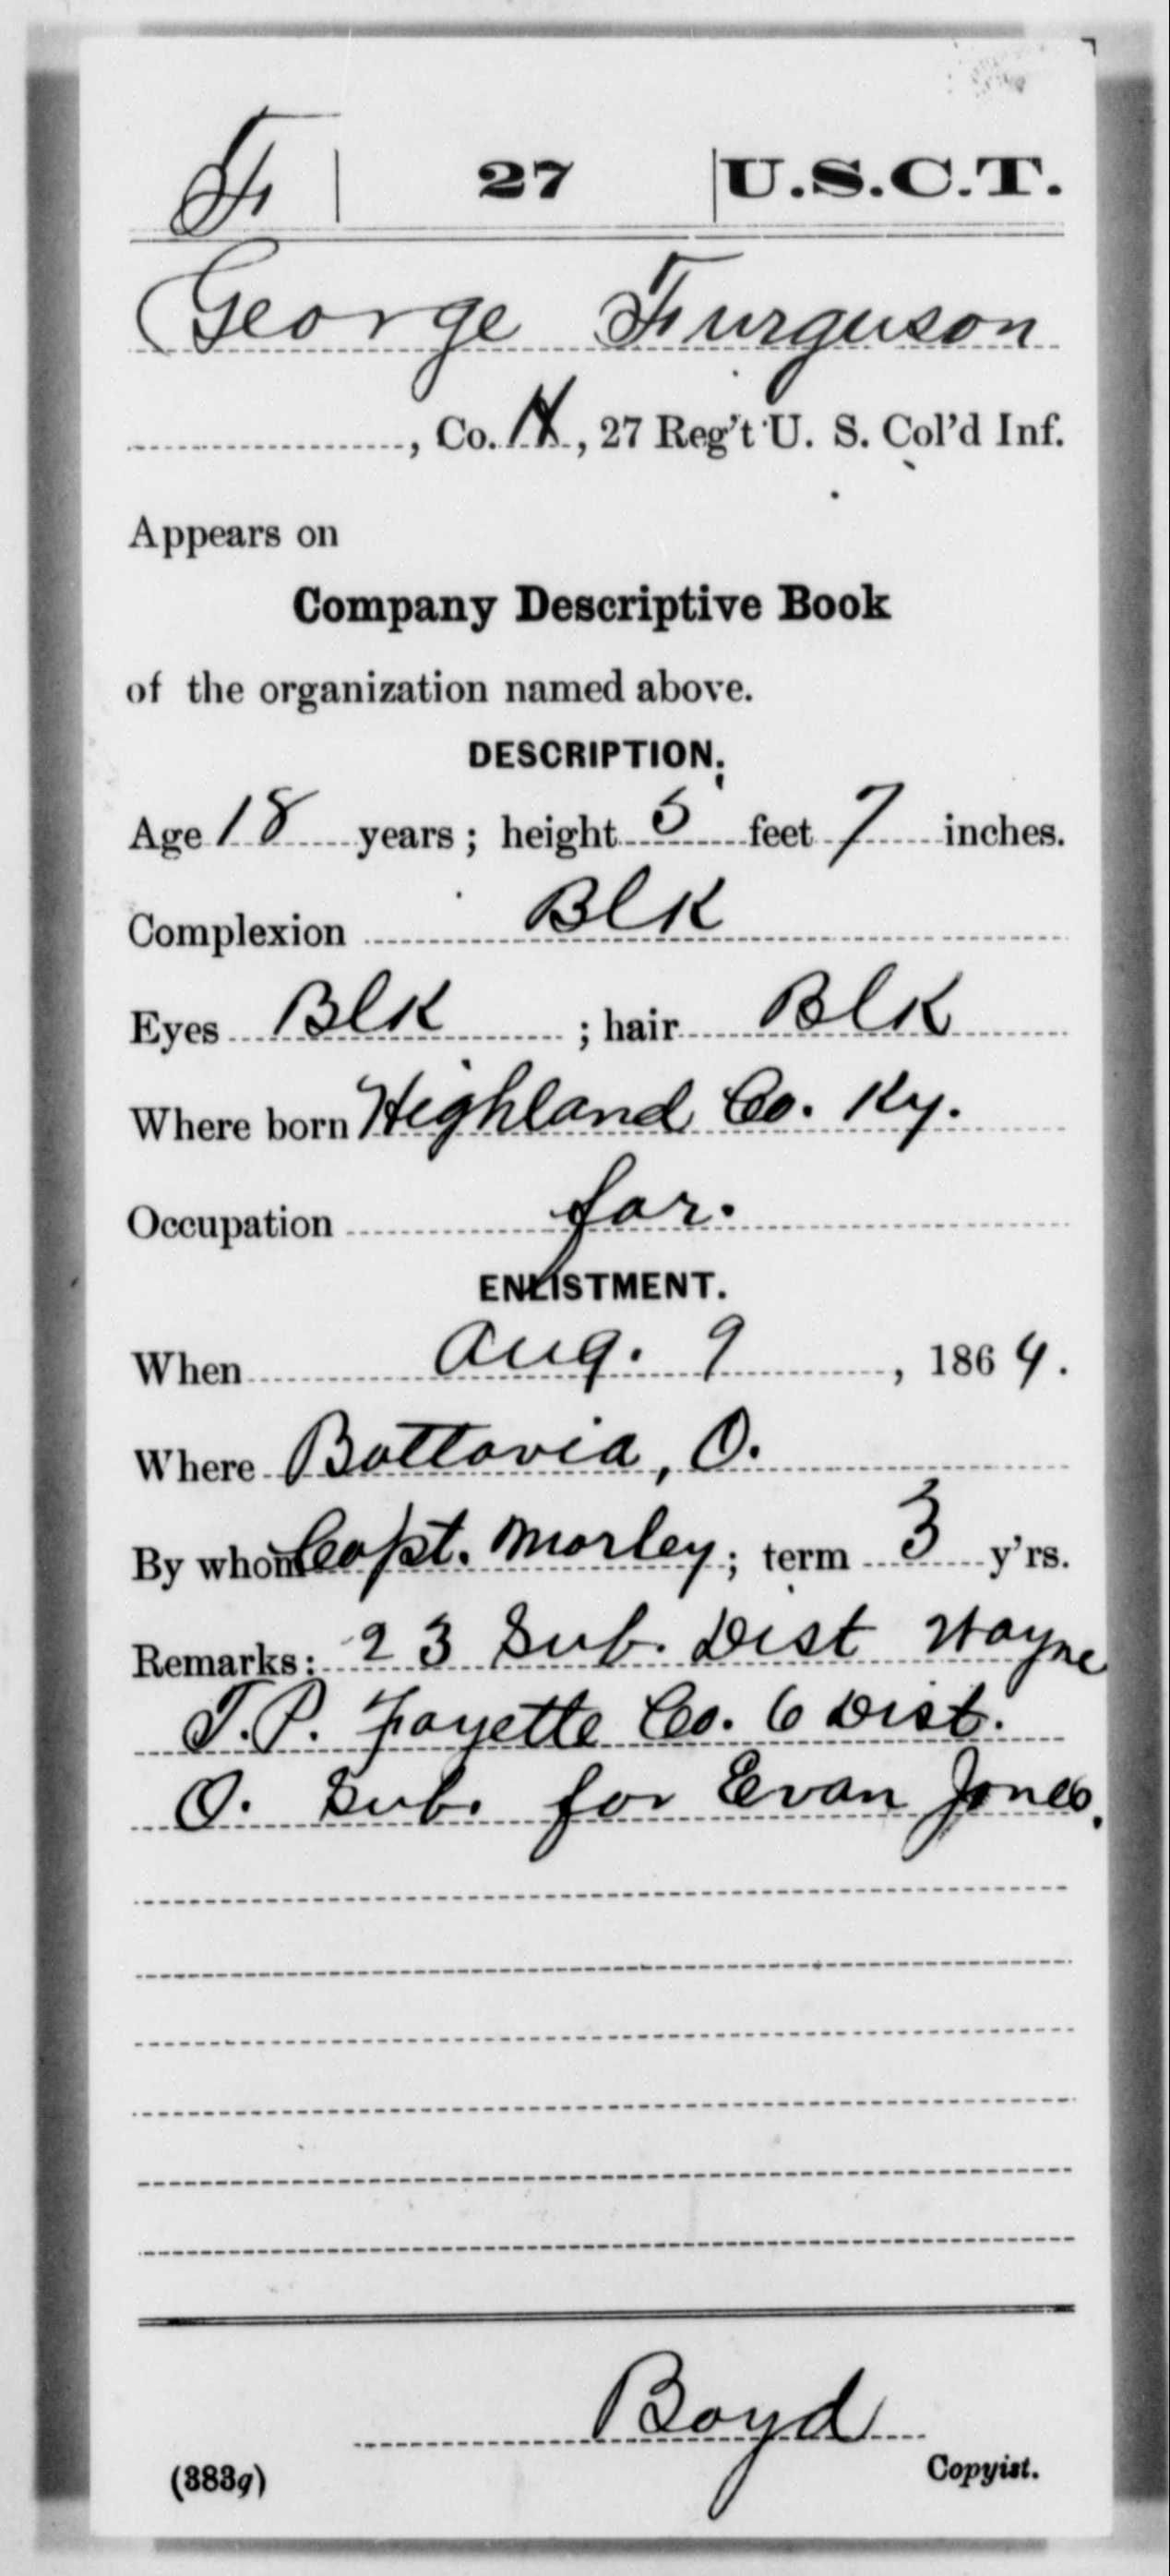 F | 27 | U.S.C.T.
George Furguson
, Co. H, 27 Reg't U. S. Col'd Inf.
Appears on
Company Descriptive Book
of the organization named above.
DESCRIPTION.
Age 18 years; height 5 feet 7 inches.
Complexion Blk
Eyes Blk; hair Blk
Where born Highland Co. Ky.
Occupation far.
ENLISTMENT.
When Aug. 9, 1864.
Where Battavia, O.
By whom Capt. Morley; term 3 y'rs.
Remarks: 23 Sub. Dist Wayne
T.P. Fayette Co. 6 Dist.
O. Sub. for Evan Jones.
Boyd
(383g) Copyist.